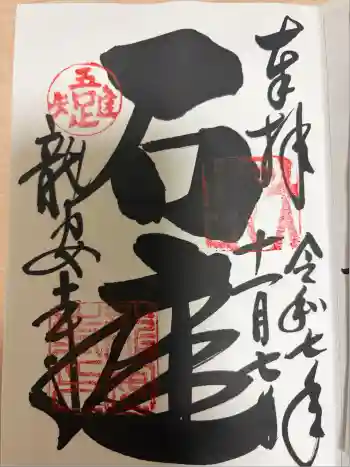 奉拝
令和七年
十一月七日
石庭
龍安寺
吾唯足知